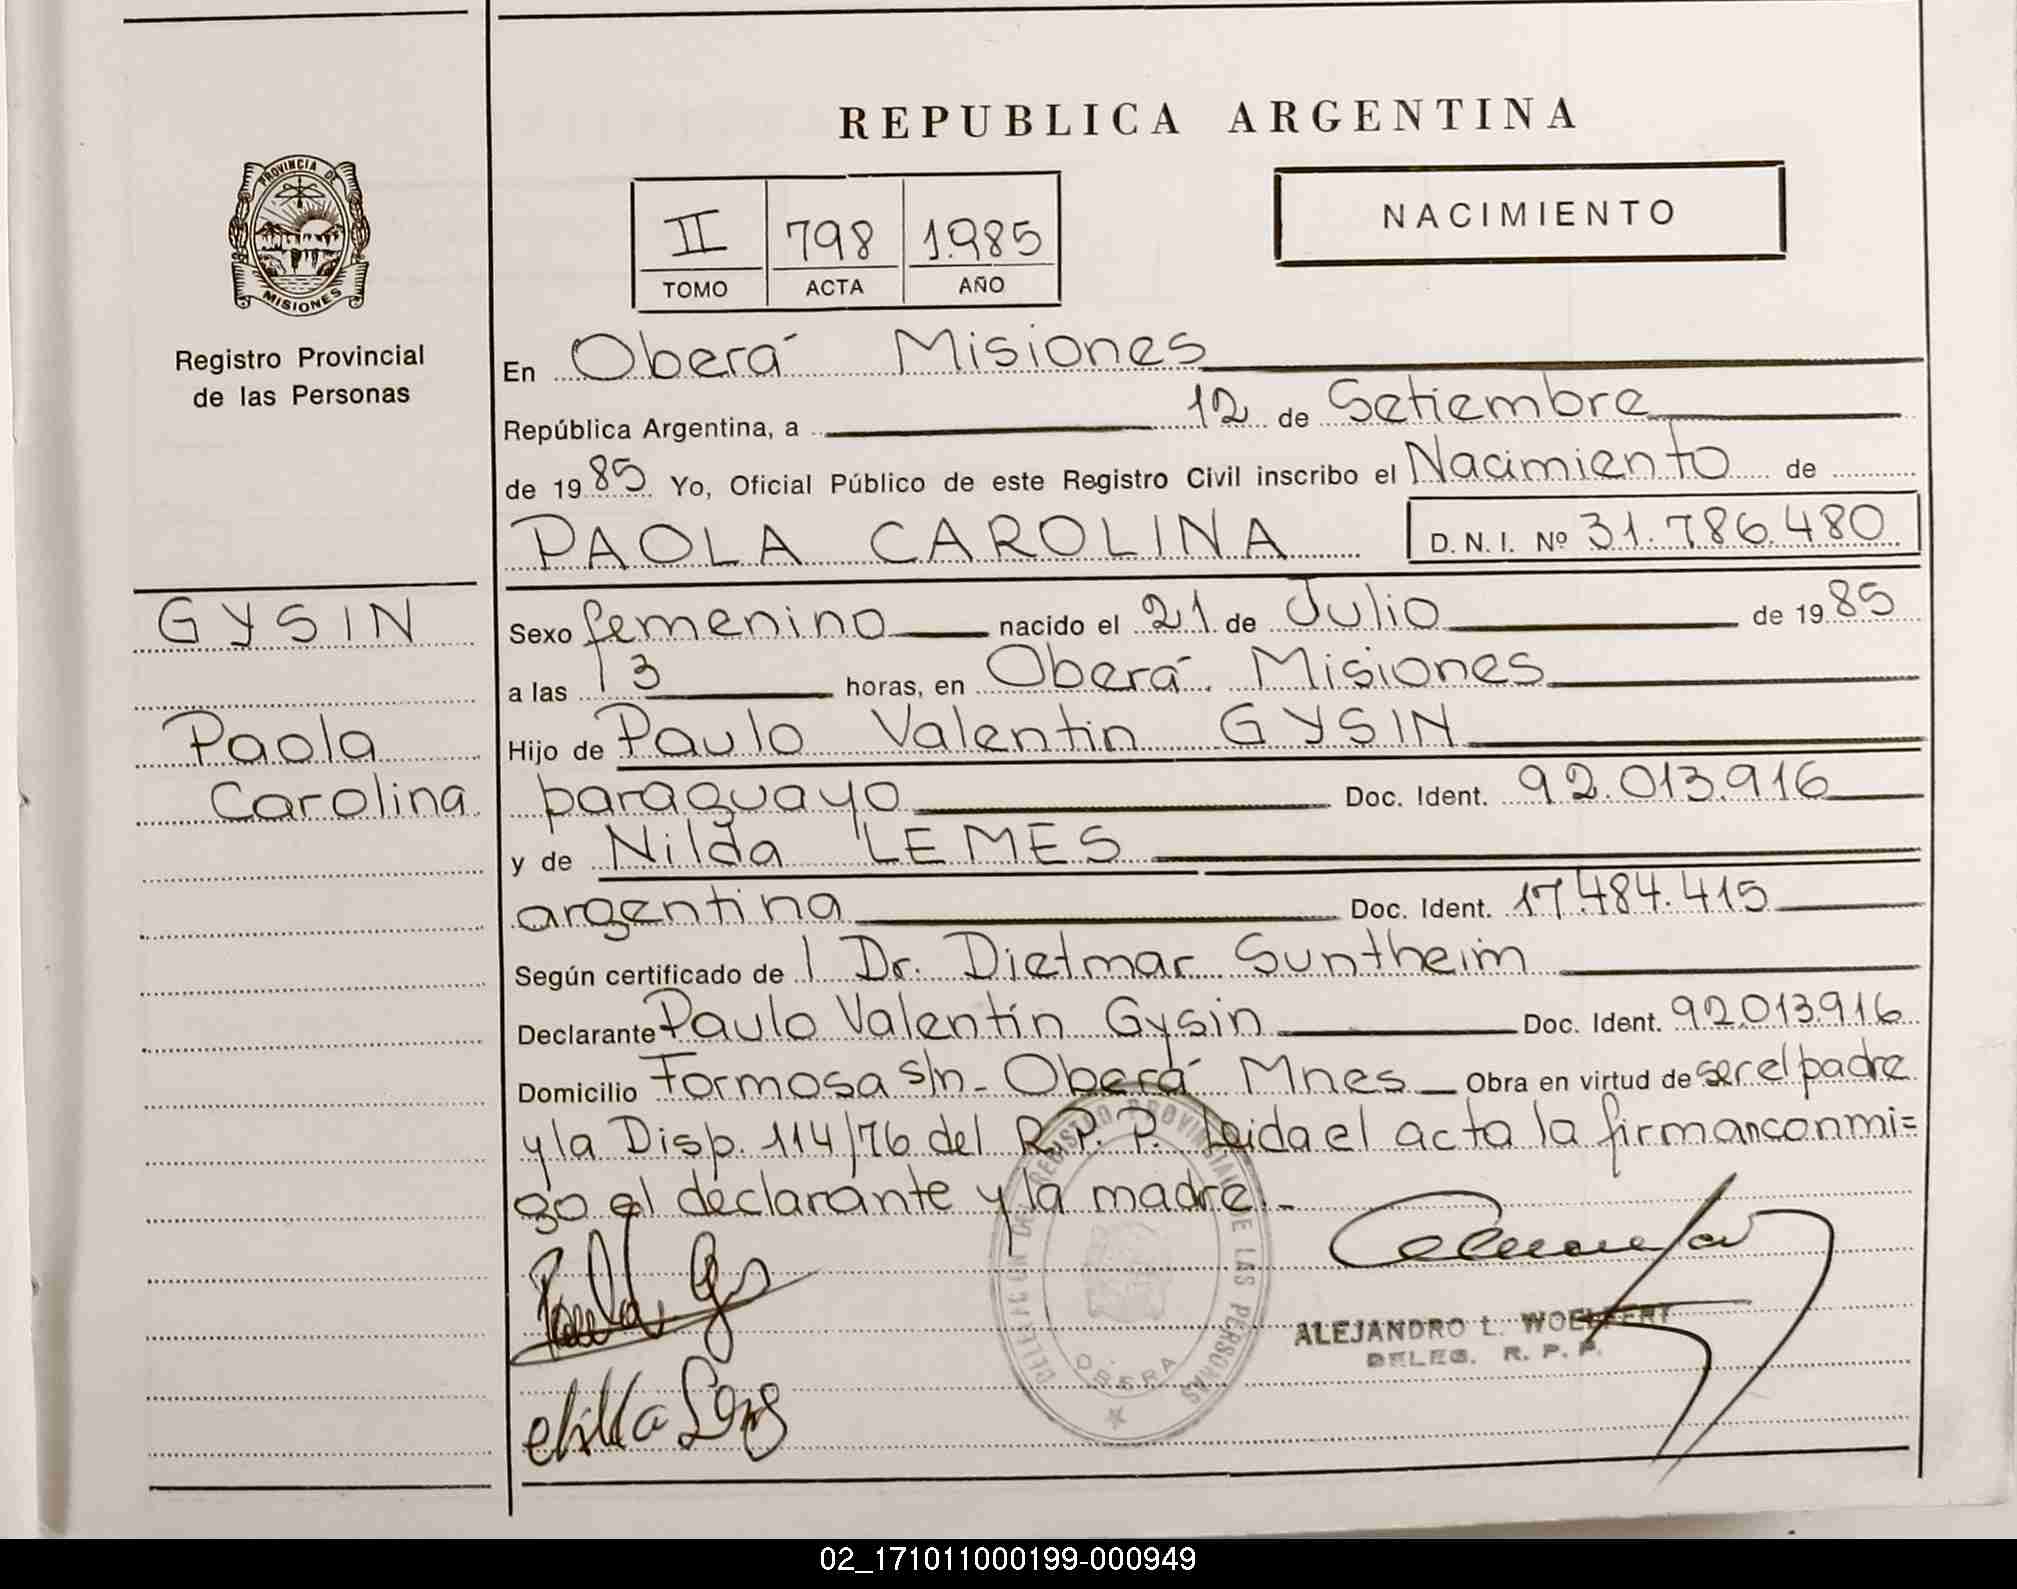 REPUBLICA ARGENTINA
PROVINCIA DE
MISIONES
Registro Provincial
de las Personas
II 798 1.985
TOMO ACTA AÑO
NACIMIENTO
En Oberá Misiones
República Argentina, a 12 de Setiembre
de 1985 Yo, Oficial Público de este Registro Civil inscribo el Nacimiento de
PAOLA CAROLINA D.N.I. Nº 31.786.480
GYSIN
Paola
Carolina
Sexo femenino nacido el 21 de Julio de 1985
a las 3 horas, en Oberá. Misiones
Hijo de Paulo Valentin GYSIN
paraguayo Doc. Ident. 92.013.916
y de Nilda LEMES
argentina Doc. Ident. 17.484.415
Según certificado de l Dr. Dietmar Suntheim
Declarante Paulo Valentín Gysin Doc. Ident. 92.013.916
Domicilio Formosa s/n - Oberá Mnes Obra en virtud de ser el padre
y la Disp. 114/76 del R.P.P. Leida el acta la firman conmi=
go el declarante y la madre.-
DELEGACION DEL REGISTRO PROVINCIAL DE LAS PERSONAS
OBERA
ALEJANDRO L. WOELFERT
DELEG. R. P. P.
02_171011000199-000949